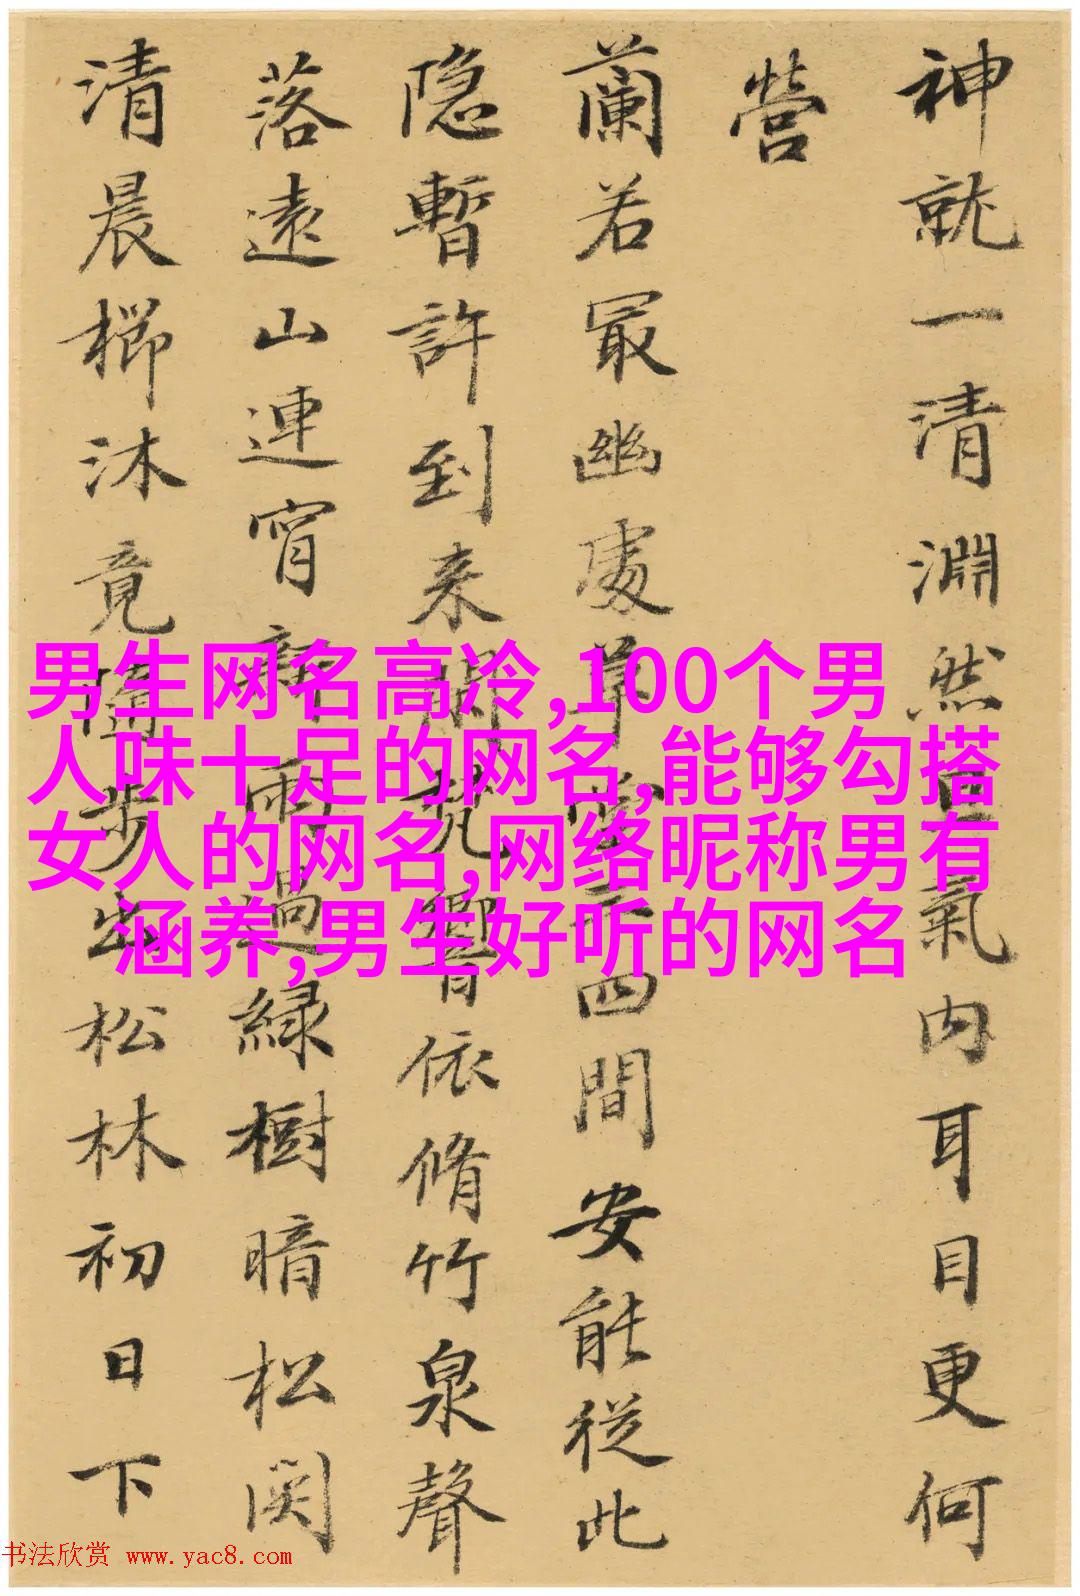 神就一清淵然氣内耳目更何
營
蘭若冣幽處草四間安能從此
隐暫許到来梵響依脩竹泉聲
落遠山連宵新雨過緑樹暗松関
清晨櫛沐竟步出松林初日下
男生网名高冷,100个男
人味十足的网名,能够勾搭
女人的网名,网络昵称男有
涵养,男生好听的网名
书法欣赏 www.yac8.com